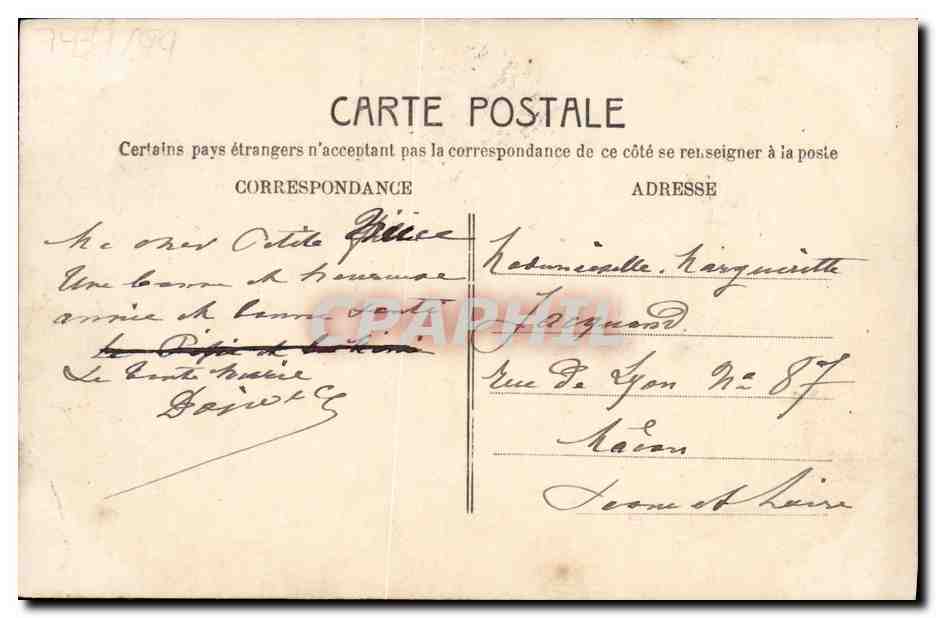 CARTE POSTALE
Certains pays étrangers n'acceptant pas la correspondance de ce côté se renseigner à la poste
CORRESPONDANCE
ADRESSE
Ma cher Petite Niièce
Une bonne et heureuse
année et bonne santé
La tante Marie
Mademoiselle Marguiritte
Jacquand
rue de Lyon No 87
Mâcon
Saone et Loire
CPAPHIL